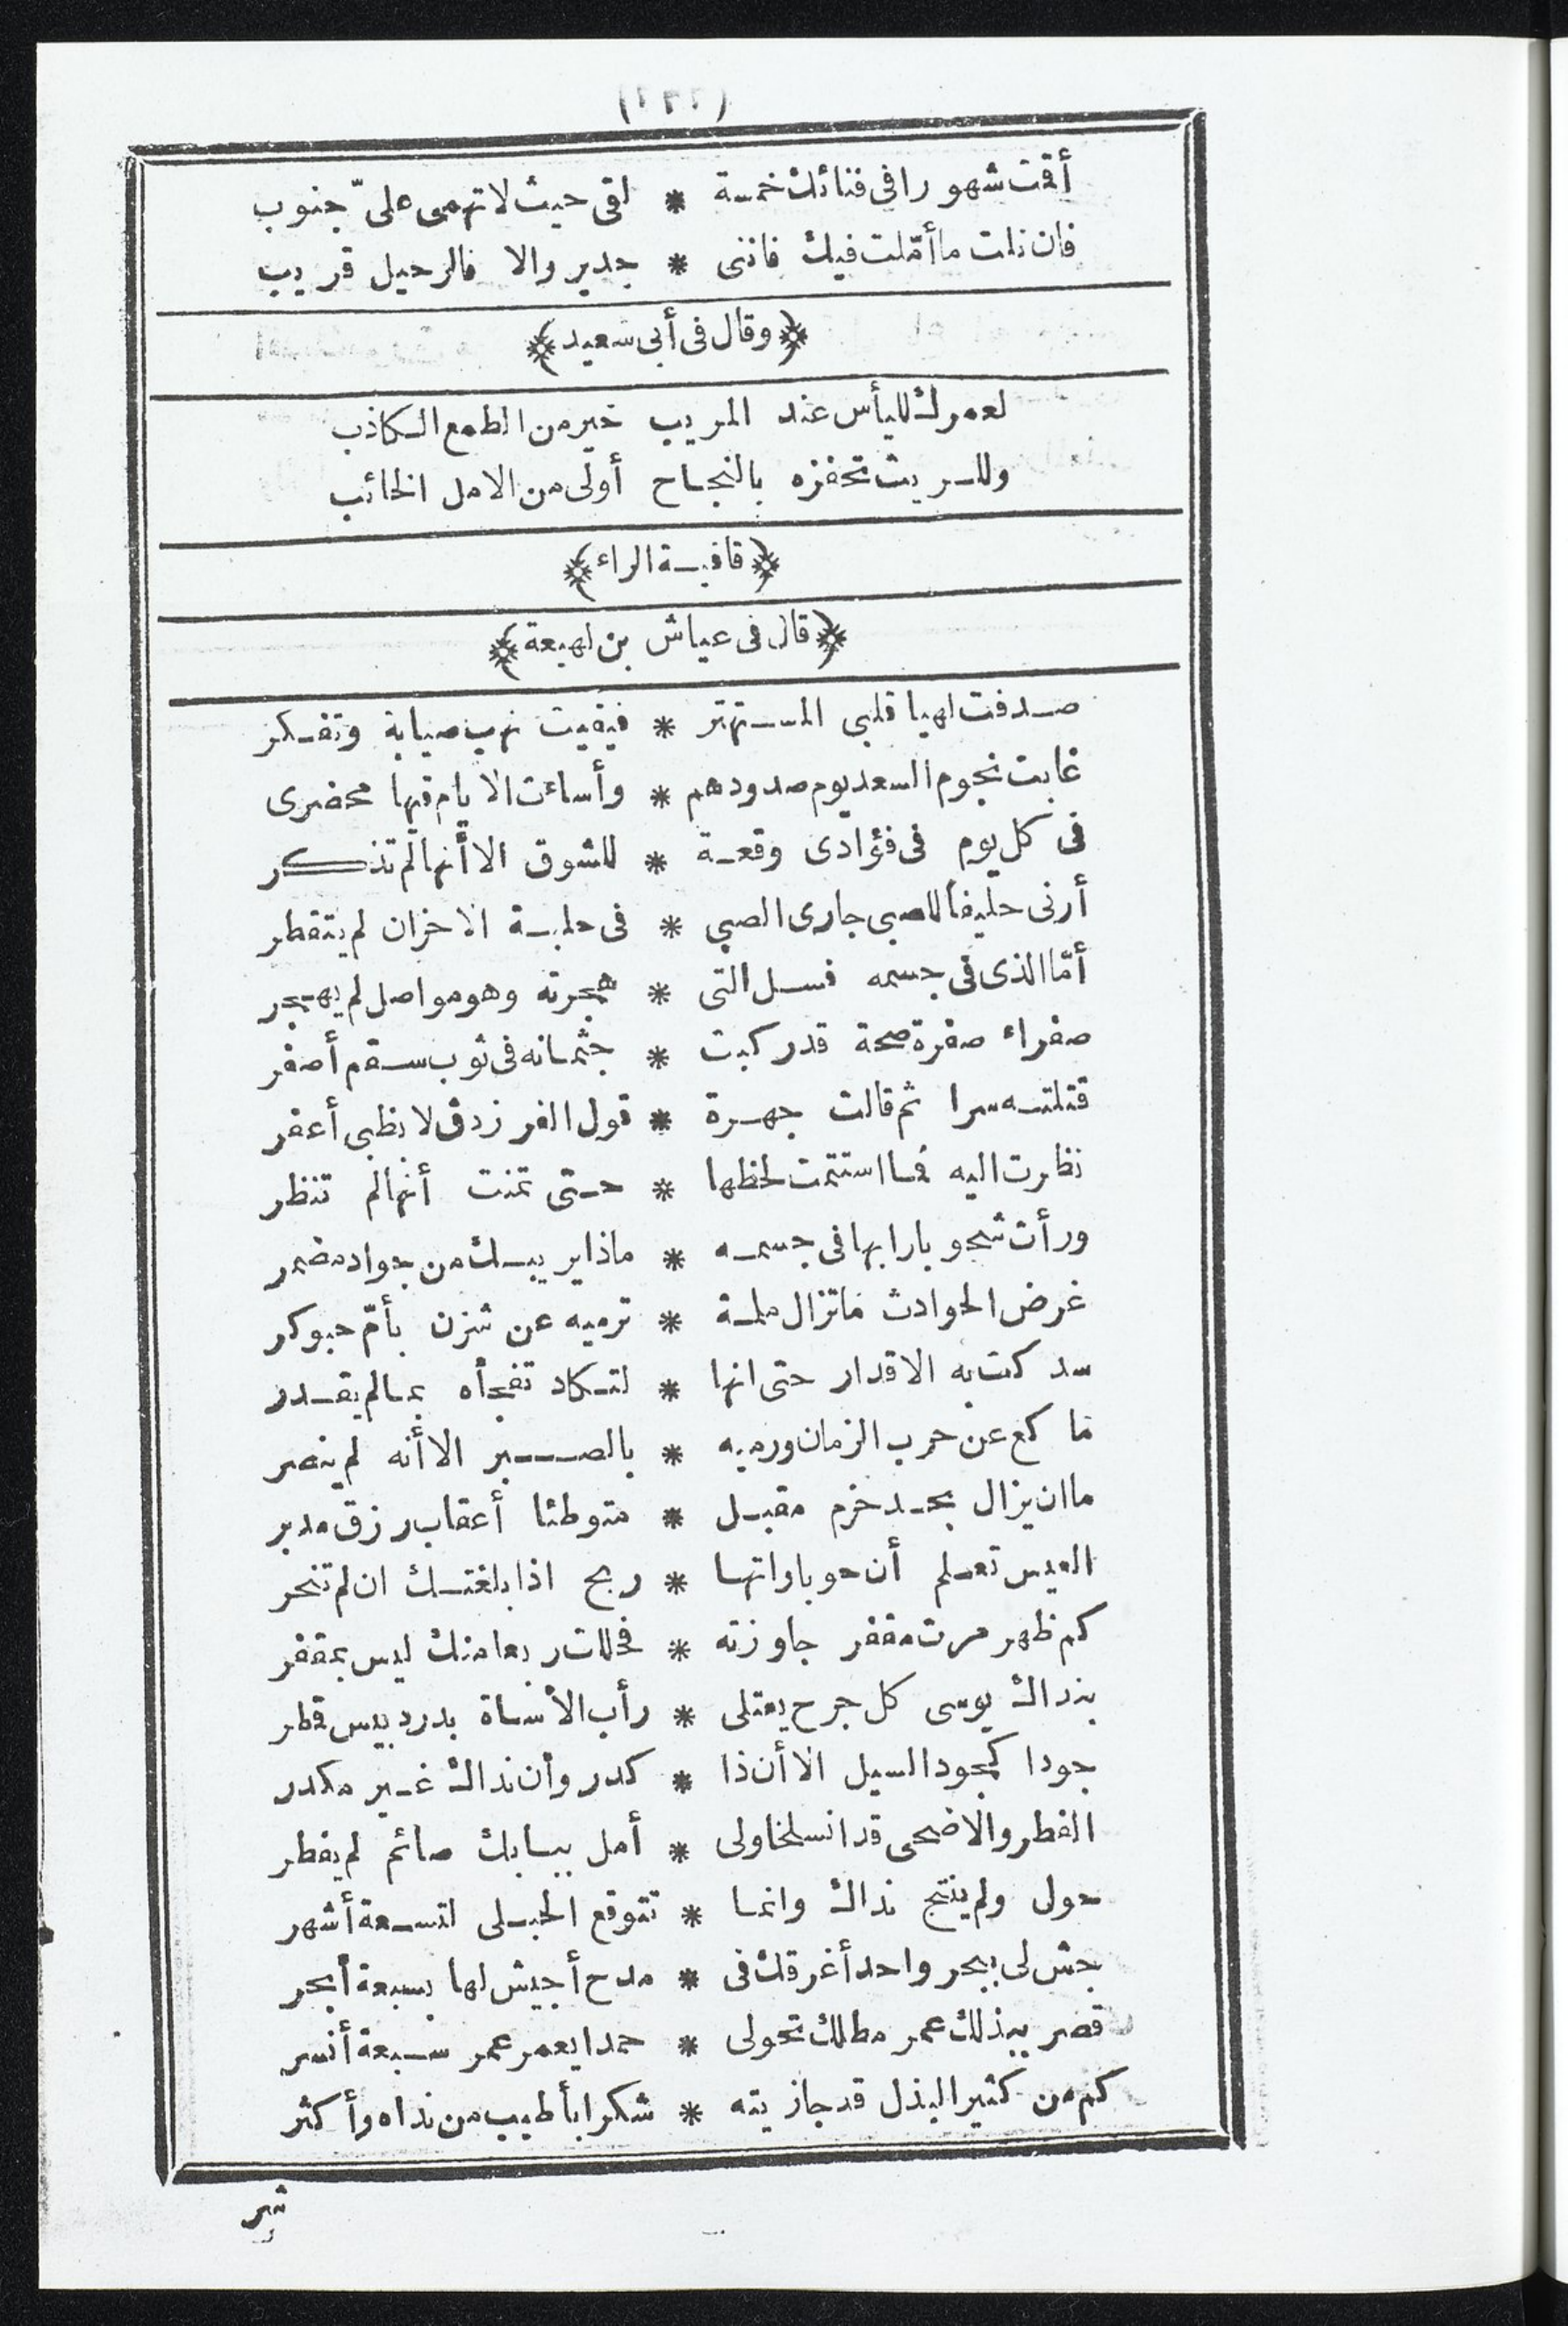 أقمت شهورا فى فنائك خمسة * لقى حيث لا تهمى علىّ جنوب
فان نلت ما أمّلت فيك فاننى * جدير والا فالرحيل قريب
﴿وقال فى أبى سعيد﴾
لعمرك لليأس عند المريب خير من الطمع الكاذب
وللريث تحفزه بالنجاح أولى من الامل الخائب
﴿قافية الراء﴾
﴿قال فى عياش بن لهيعة﴾
صدفت لهيا قلبى المستهتر * فبقيت نهب صبابة وتفكر
غابت نجوم السعد يوم صدودهم * وأساءت الايام فيها محضرى
فى كل يوم فى فؤادى وقعة * للشوق الا أنها لم تذكر
أرنى حليفا للصبى جارى الصبى * فى حلبة الاحزان لم يتفطر
أمّا الذى فى جسمه فسل التى * هجرته وهو مواصل لم يهجر
صفراء صفرة صحة قد ركبت * جثمانه فى ثوب سقم أصفر
قتلته سرا ثم قالت جهرة * قول الفرزدق لا بظبى أعفر
نظرت اليه فما استتمت لحظها * حتى تمنت أنها لم تنظر
ورأت شحوبا رابها فى جسمه * ماذا يريبك من جواد مضمر
غرض الحوادث ما تزال ملمة * ترميه عن شزن بأمّ حبوكر
سدكت به الاقدار حتى انها * لتكاد تفجأه بما لم يقدر
ما كع عن حرب الزمان ورميه * بالصبر الا أنه لم ينصر
ما ان يزال بجد حزم مقبل * متوطئا أعقاب رزق مدبر
العيس تعلم أن حوباواتها * ريح اذا بلغتك ان لم تنحر
كم ظهر مرت مقفر جاوزته * فحللت ربعا منك ليس بمقفر
بنداك يوسى كل جرح يعتلى * رأب الأساة بدردبيس قنطر
جودا كجود السيل الا أن ذا * كدر وأن نداك غير مكدر
الفطر والاضحى قد انسلخا ولى * أمل ببابك صائم لم يفطر
حول ولم ينتج نداك وانما * تتوقع الحبلى لتسعة أشهر
جش لى ببحر واحد أغرقك فى * مدح أجيش لها بسبعة أبحر
قصر ببذلك عمر مطلك تحولى * حمدا يعمر عمر سبعة أنسر
كم من كثير البذل قد جازيته * شكرا بأطيب من نداه وأكثر